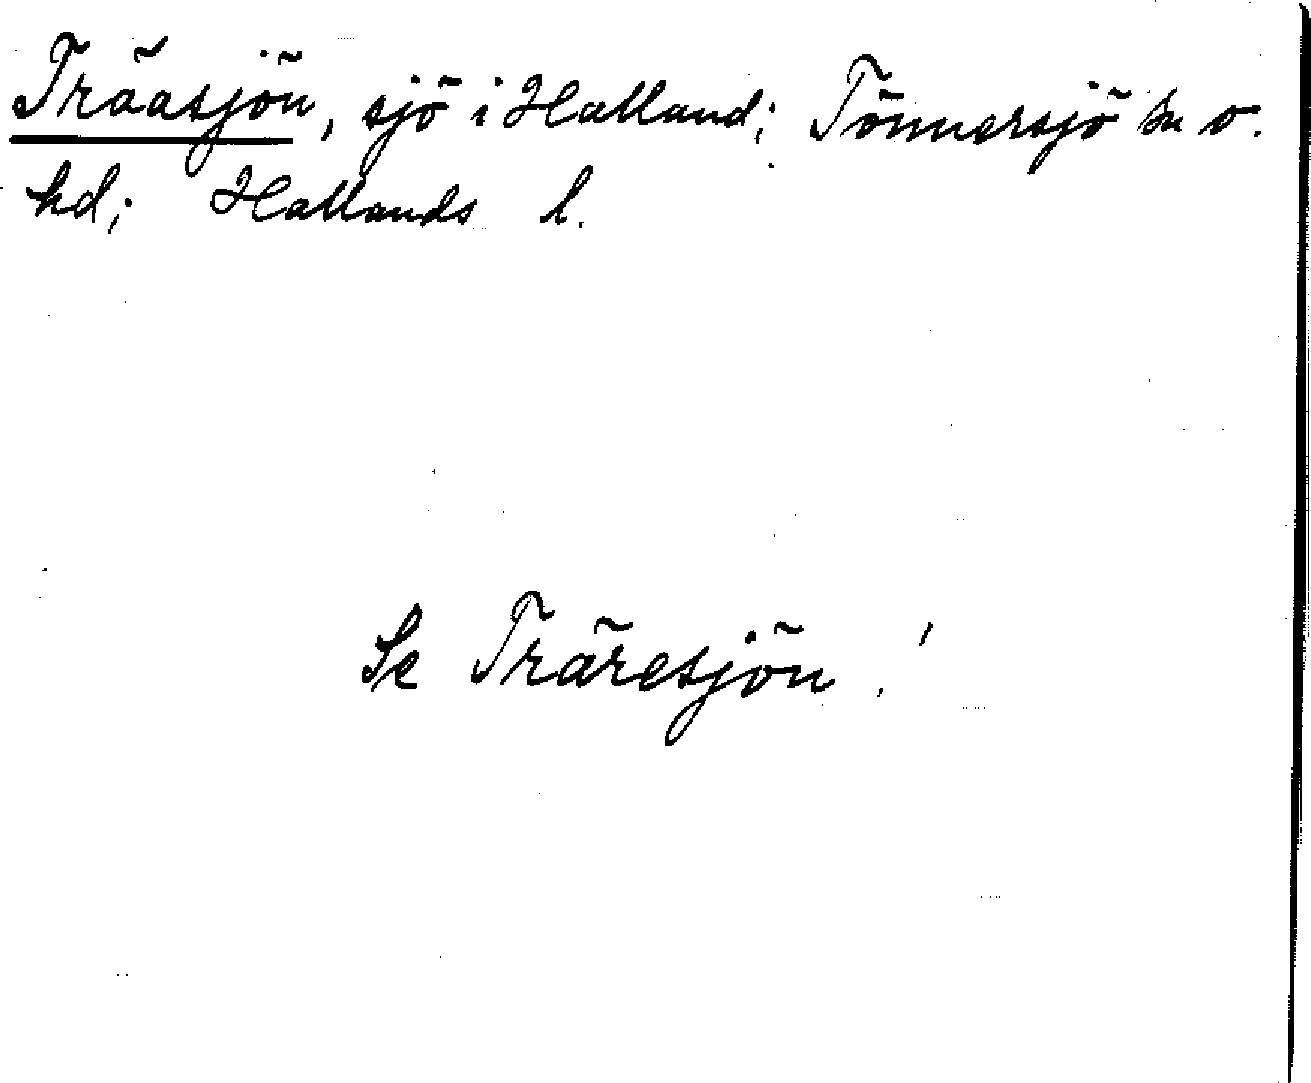 Träasjön, sjö i Halland; Tönnersjö sn o.
hd; Hallands l.
Se Träresjön!